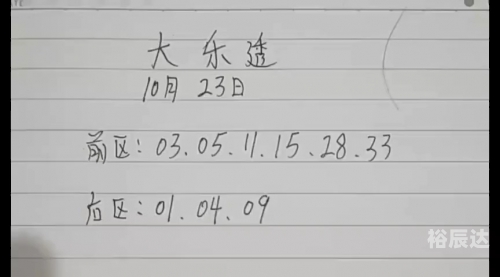 大乐透
10月23日
前区：03.05.11.15.28.33
后区：01.04.09
裕辰达